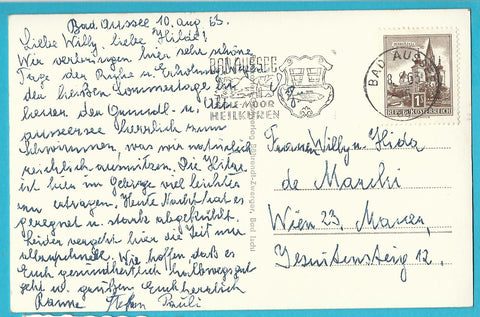 Bad Aussee 10. aug 63.
Liebe Willy, liebe Hilde!
Wir verbringen hier sehr schöne
Tage der Ruhe u. Erholung. Wegen
der heißen Sommertage ist
heuer der Grundl- u
Ausseersee herrlich zum
schwimmen, was wir natürlich
reichlich ausnützen. Die Hitze
ist hier im Gebirge viel leichter
zu ertragen. Heute Nacht hat es
geregnet u. stark abgekühlt.
Leider vergeht hier die Zeit nur
allzuschnell. Wir hoffen daß es
Euch gesundheitlich halbwegs gut
geht u. grüßen Euch herzlich
Stefan Pauli
BAD AUSSEE
MOOR
HEILKUREN
BAD AUSSEE
REPUBLIK ÖSTERREICH
Willy u. Hilda
de Marchi
Wien 23. Mauer,
Jesuitensteig 12.
Bad Ischl